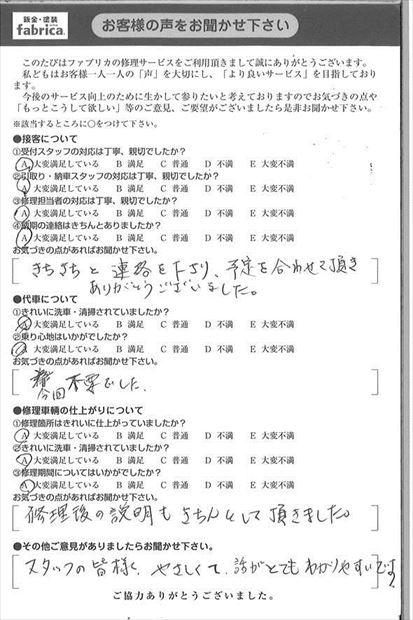 鈑金・塗装
fabrica.
お客様の声をお聞かせ下さい
このたびはファブリカの修理サービスをご利用頂きまして誠にありがとうございます。
私どもはお客様一人一人の「声」を大切にし、「より良いサービス」を目指しております。
今後のサービス向上のために生かして参りたいと考えておりますのでお気づきの点や
「もっとこうして欲しい」等のご意見、ご要望がございましたら是非お聞かせ下さい。
※該当するところに○をつけて下さい。
●接客について
①受付スタッフの対応は丁寧、親切でしたか?
A 大変満足している B 満足 C 普通 D 不満 E 大変不満
②引取り・納車スタッフの対応は丁寧、親切でしたか?
A 大変満足している B 満足 C 普通 D 不満 E 大変不満
③修理担当者の対応は丁寧、親切でしたか?
A 大変満足している B 満足 C 普通 D 不満 E 大変不満
④納期の連絡はきちんとありましたか?
A 大変満足している B 満足 C 普通 D 不満 E 大変不満
お気づきの点があればお聞かせ下さい。
きちきちと連絡を下さり、予定を合わせて頂き
ありがとうございました。
●代車について
①きれいに洗車・清掃されていましたか?
A 大変満足している B 満足 C 普通 D 不満 E 大変不満
②乗り心地はいかがでしたか?
A 大変満足している B 満足 C 普通 D 不満 E 大変不満
お気づきの点があればお聞かせ下さい。
今回不要でした.
●修理車輌の仕上がりについて
①修理箇所はきれいに仕上がっていましたか?
A 大変満足している B 満足 C 普通 D 不満 E 大変不満
②きれいに洗車・清掃されていましたか?
A 大変満足している B 満足 C 普通 D 不満 E 大変不満
③修理期間についてはいかがでしたか?
A 大変満足している B 満足 C 普通 D 不満 E 大変不満
お気づきの点があればお聞かせ下さい。
修理後の説明もきちんとして頂きました。
●その他ご意見がありましたらお聞かせ下さい。
スタッフの皆様、やさしくて、話がとてもわかりやすいです。
ご協力ありがとうございました。